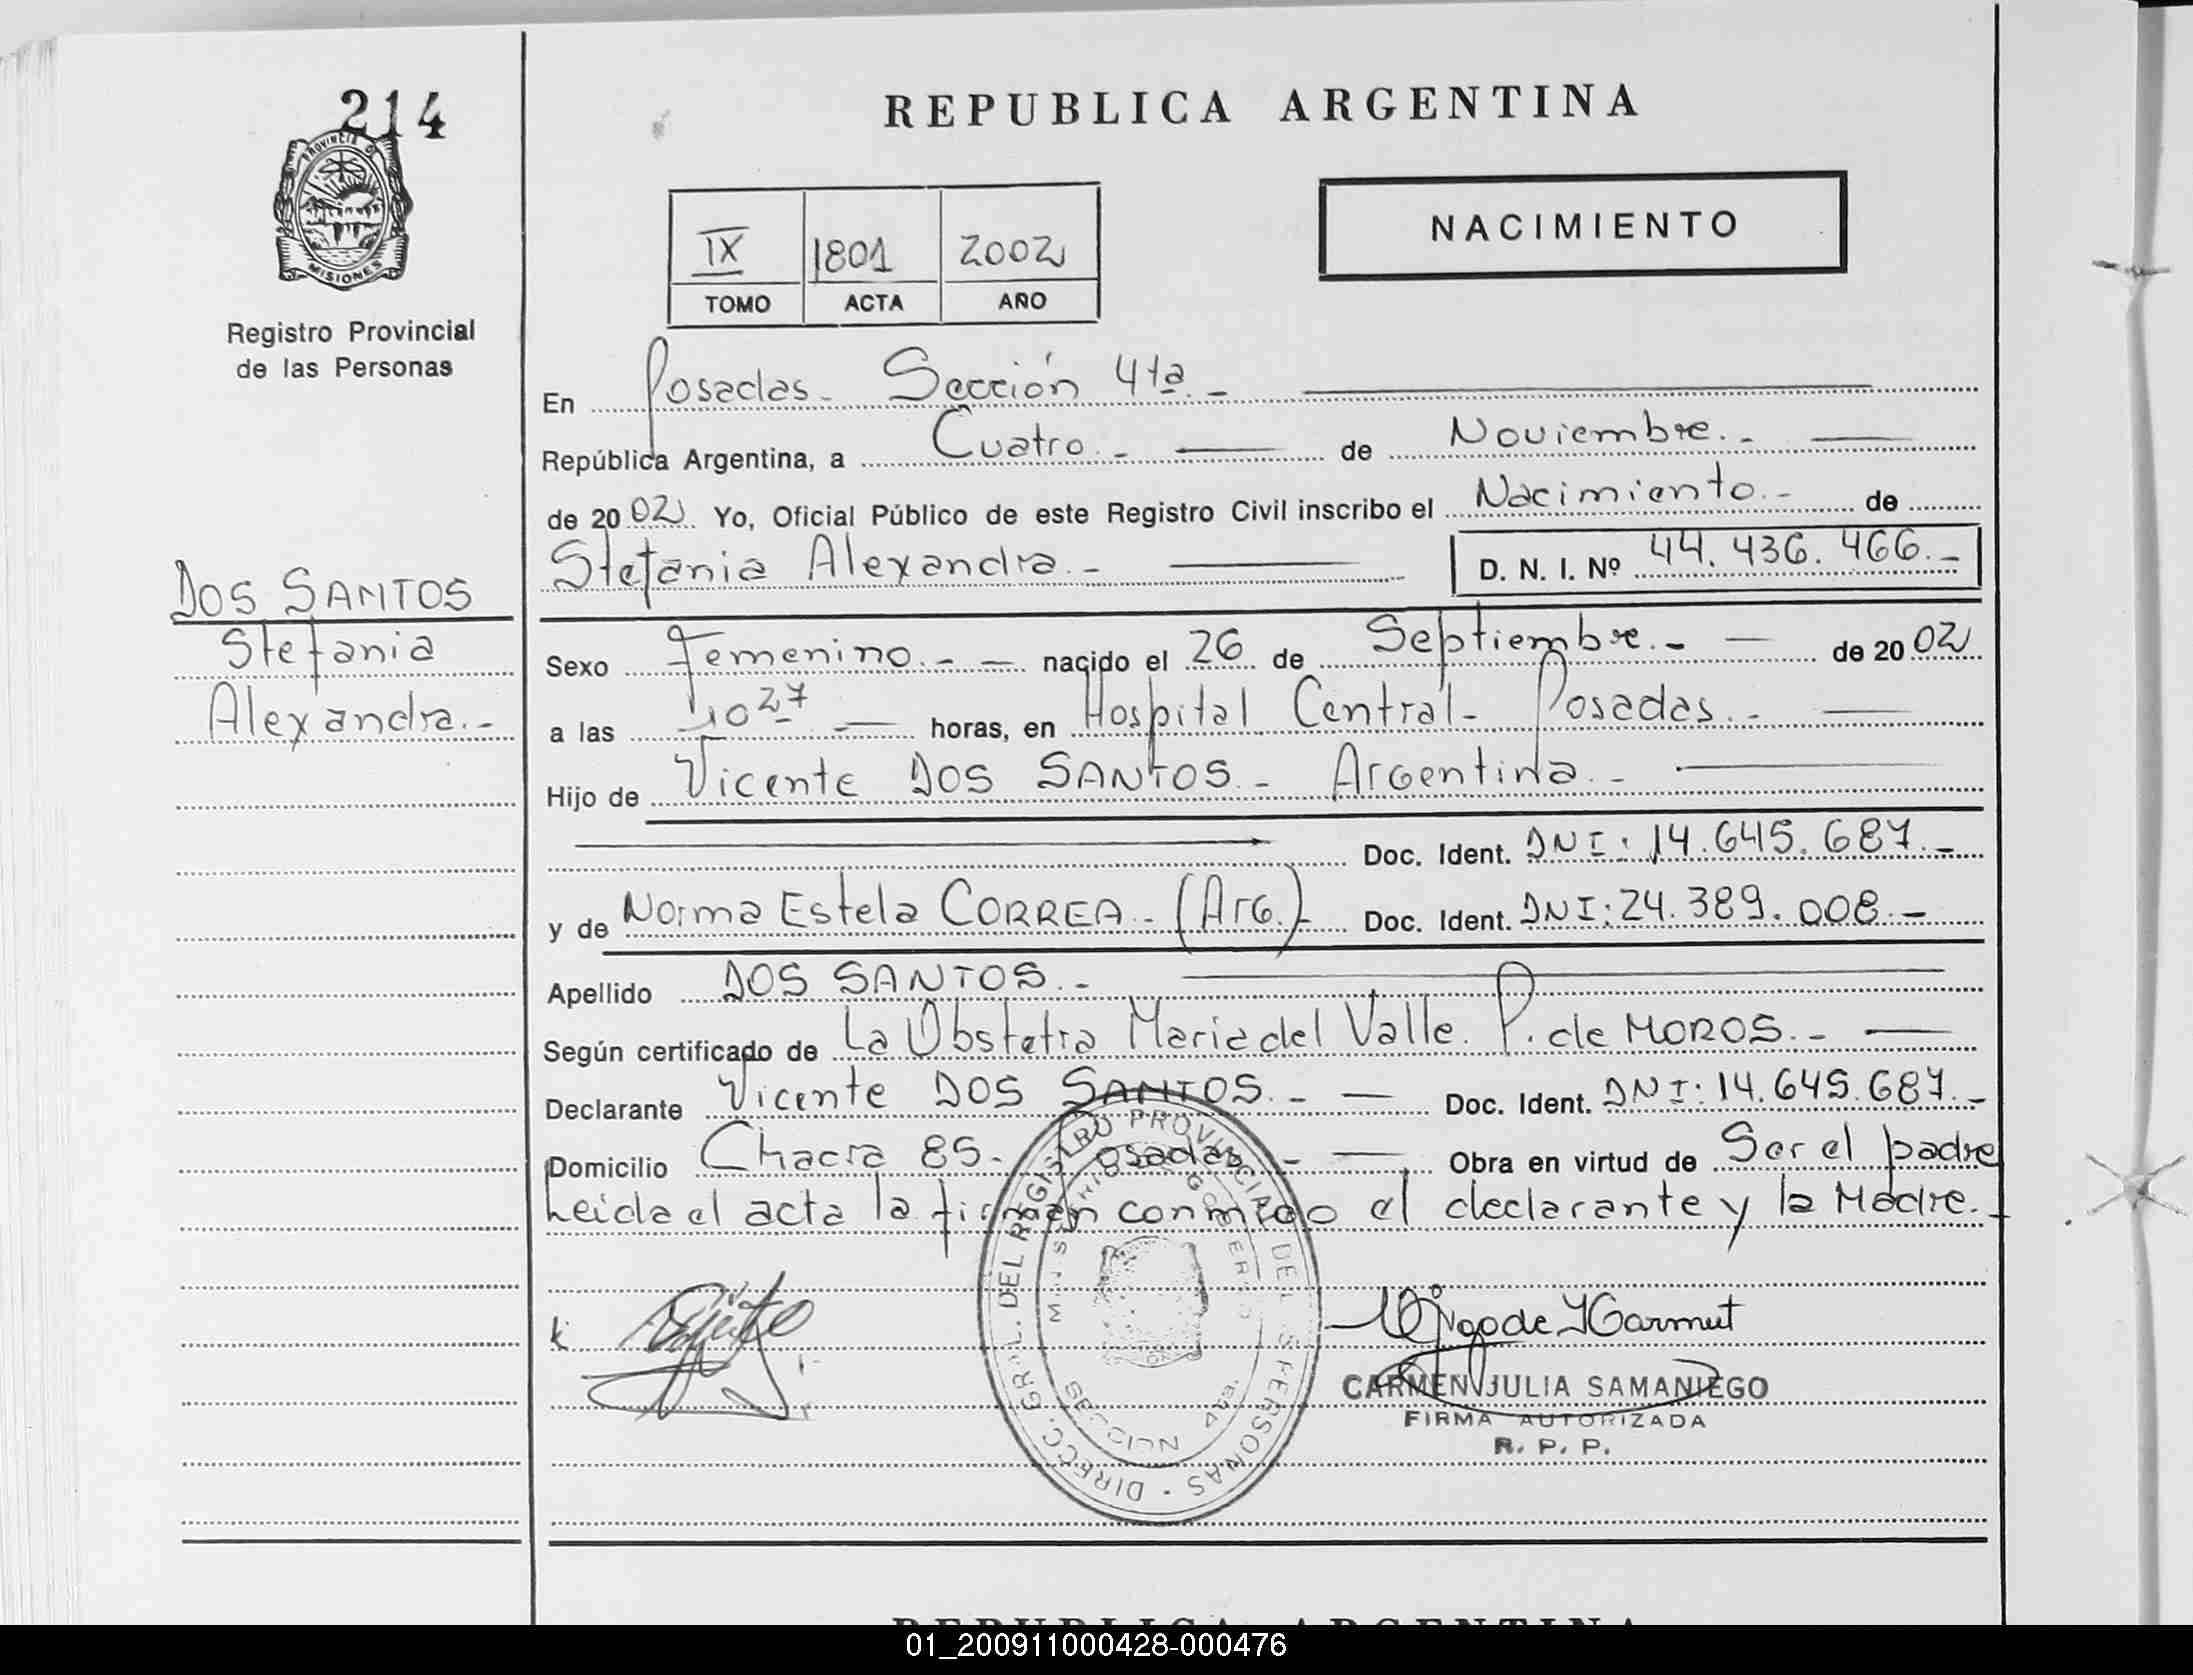 214
PROVINCIA D
MISIONES
Registro Provincial
de las Personas
REPUBLICA ARGENTINA
NACIMIENTO
IX 1801 2002
TOMO ACTA AÑO
En Posadas.- Sección 4ta.-
República Argentina, a Cuatro.- de Noviembre.-
de 2002 Yo, Oficial Público de este Registro Civil inscribo el Nacimiento.- de
Stefania Alexandra.- D. N. I. Nº 44.436.466.-
DOS SANTOS
Stefania
Alexandra.-
Sexo Femenino.- nacido el 26 de Septiembre.- de 2002
a las 10 27 horas, en Hospital Central- Posadas.-
Hijo de Vicente DOS SANTOS.- Argentina.-
Doc. Ident. DNI: 14.645.687.-
y de Norma Estela CORREA.- (Arg.)- Doc. Ident. DNI: 24.389.008.-
Apellido DOS SANTOS.-
Según certificado de La Obstetra Maria del Valle. P. de MOROS.-
Declarante Vicente DOS SANTOS.- Doc. Ident. DNI: 14.645.687.-
Domicilio Chacra 85.- Posadas.- Obra en virtud de Ser el padre
Leida el acta la firman conmigo el declarante y la Madre.-
DIRECC. GRAL. DEL REGISTRO PROVINCIAL DE LAS PERSONAS
MINISTERIO GOBIERNO
SECCION 4ta.
CARMEN JULIA SAMANIEGO
FIRMA AUTORIZADA
R. P. P.
REPUBLICA ARGENTINA
01_200911000428-000476